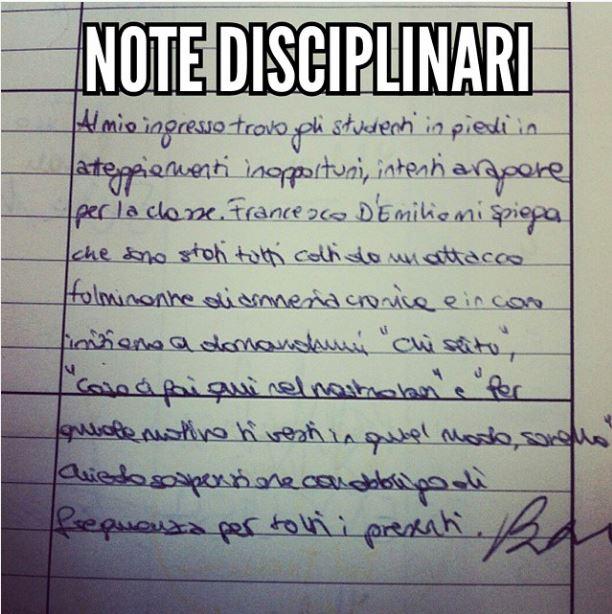 NOTE DISCIPLINARI
Al mio ingresso trovo gli studenti in piedi in
atteggiamenti inopportuni, intenti a vagare
per la classe. Francesco D'Emilio mi spiega
che sono stati tutti colti da un attacco
fulminante di amnesia cronica e in coro
iniziano a domandarmi "chi sei tu",
"cosa ci fai qui nel nostro" e "Per
quale motivo ti vesti in quel modo, sorella"
Chiedo sospensione con obbligo di
frequenza per tutti i presenti.